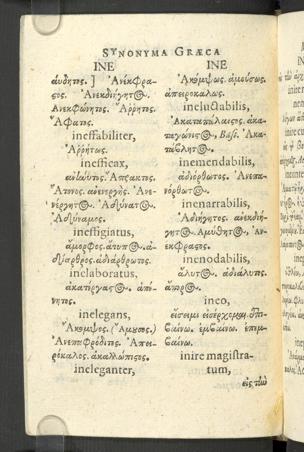 SYNONYMA GRÆCA
INE
αύδητος. ] Ἀνέκφρα-
ςος. Ἀνεκδιήγητος.
Ἀνεκφώνητος. Ἄῤῥητος.
Ἄφατος.
ineffabiliter,
Ἀῤῥήτως.
inefficax,
Ἄπρακτος.
Ἄπονος. ἀνενεργής. Ἀνε-
νέργητος. Ἀδύνατος.
Ἀδύναμος.
inestigiatus,
ἄμορφος. ἄτυπος. ἀ-
διάρθρωτος.
inelaboratus,
ἀκατέργαςος. ἀπό-
νητος.
inelegans,
Ἄκομψος. (Ἄμουσος.)
Ἀνεπαφρόδιτος. Ἀπει-
ρόκαλος. ἀκαλλώπιςος.
ineleganter,
INE
Ἀκόμψως. ἀμούσως.
ἀπειροκάλως.
ineluctabilis,
Ἀκαταπάλαιςος. ἀκα-
ταγώνιςος, Bas. Ἀκα-
inemendabilis,
ἀδιόρθωτος. Ἀνεπα-
νόρθωτος.
inenarrabilis,
Ἀδιήγητος. ἀνεκδιή-
γητος. Ἀμύθητος, Ἀν-
έκφραςος.
inenodabilis,
ἄλυτος. ἀδιάλυτος.
ἄπορος.
ineo,
εἴσειμι εἰσέρχομαι.
βαίνω. ἐμβαίνω. ἐπιμ-
βαίνω.
inire magistra-
tum,
εἰς τὴν